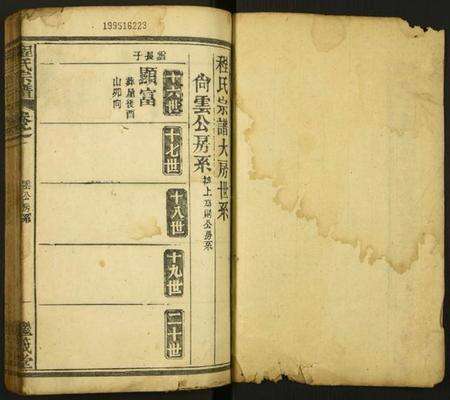 199516223
程氏宗譜大房世系
尙雲公房系
接上
公房系
十六世
十七世
十八世
十九世
二十世
長子
顯富
葬屋後酉
山卯向
程氏宗譜
卷之
雲公房系